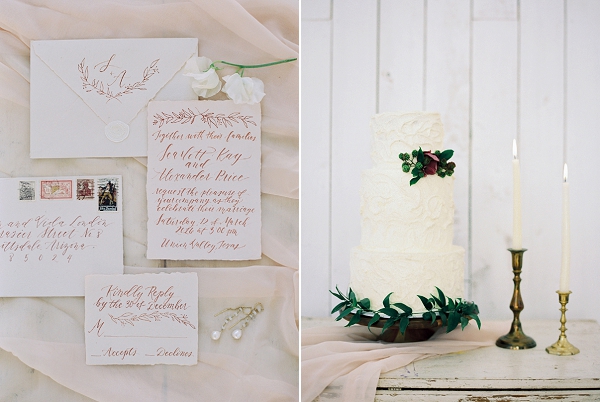 S A
Together with their families
Scarlett Kay
and
Alexander Price
request the pleasure of
your company as they
celebrate their marriage
Saturday 22 of March
2016 at 3:00 pm
Union Valley, Texas
and Linda London
Street No 8
Arizona
85024
Kindly Reply
by the 30 of December
M
Accepts Declines